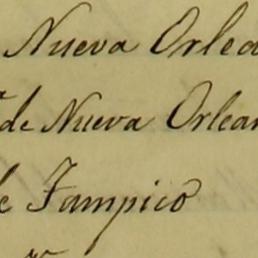 Nueva Orlea
de Nueva Orlean
de Tampico